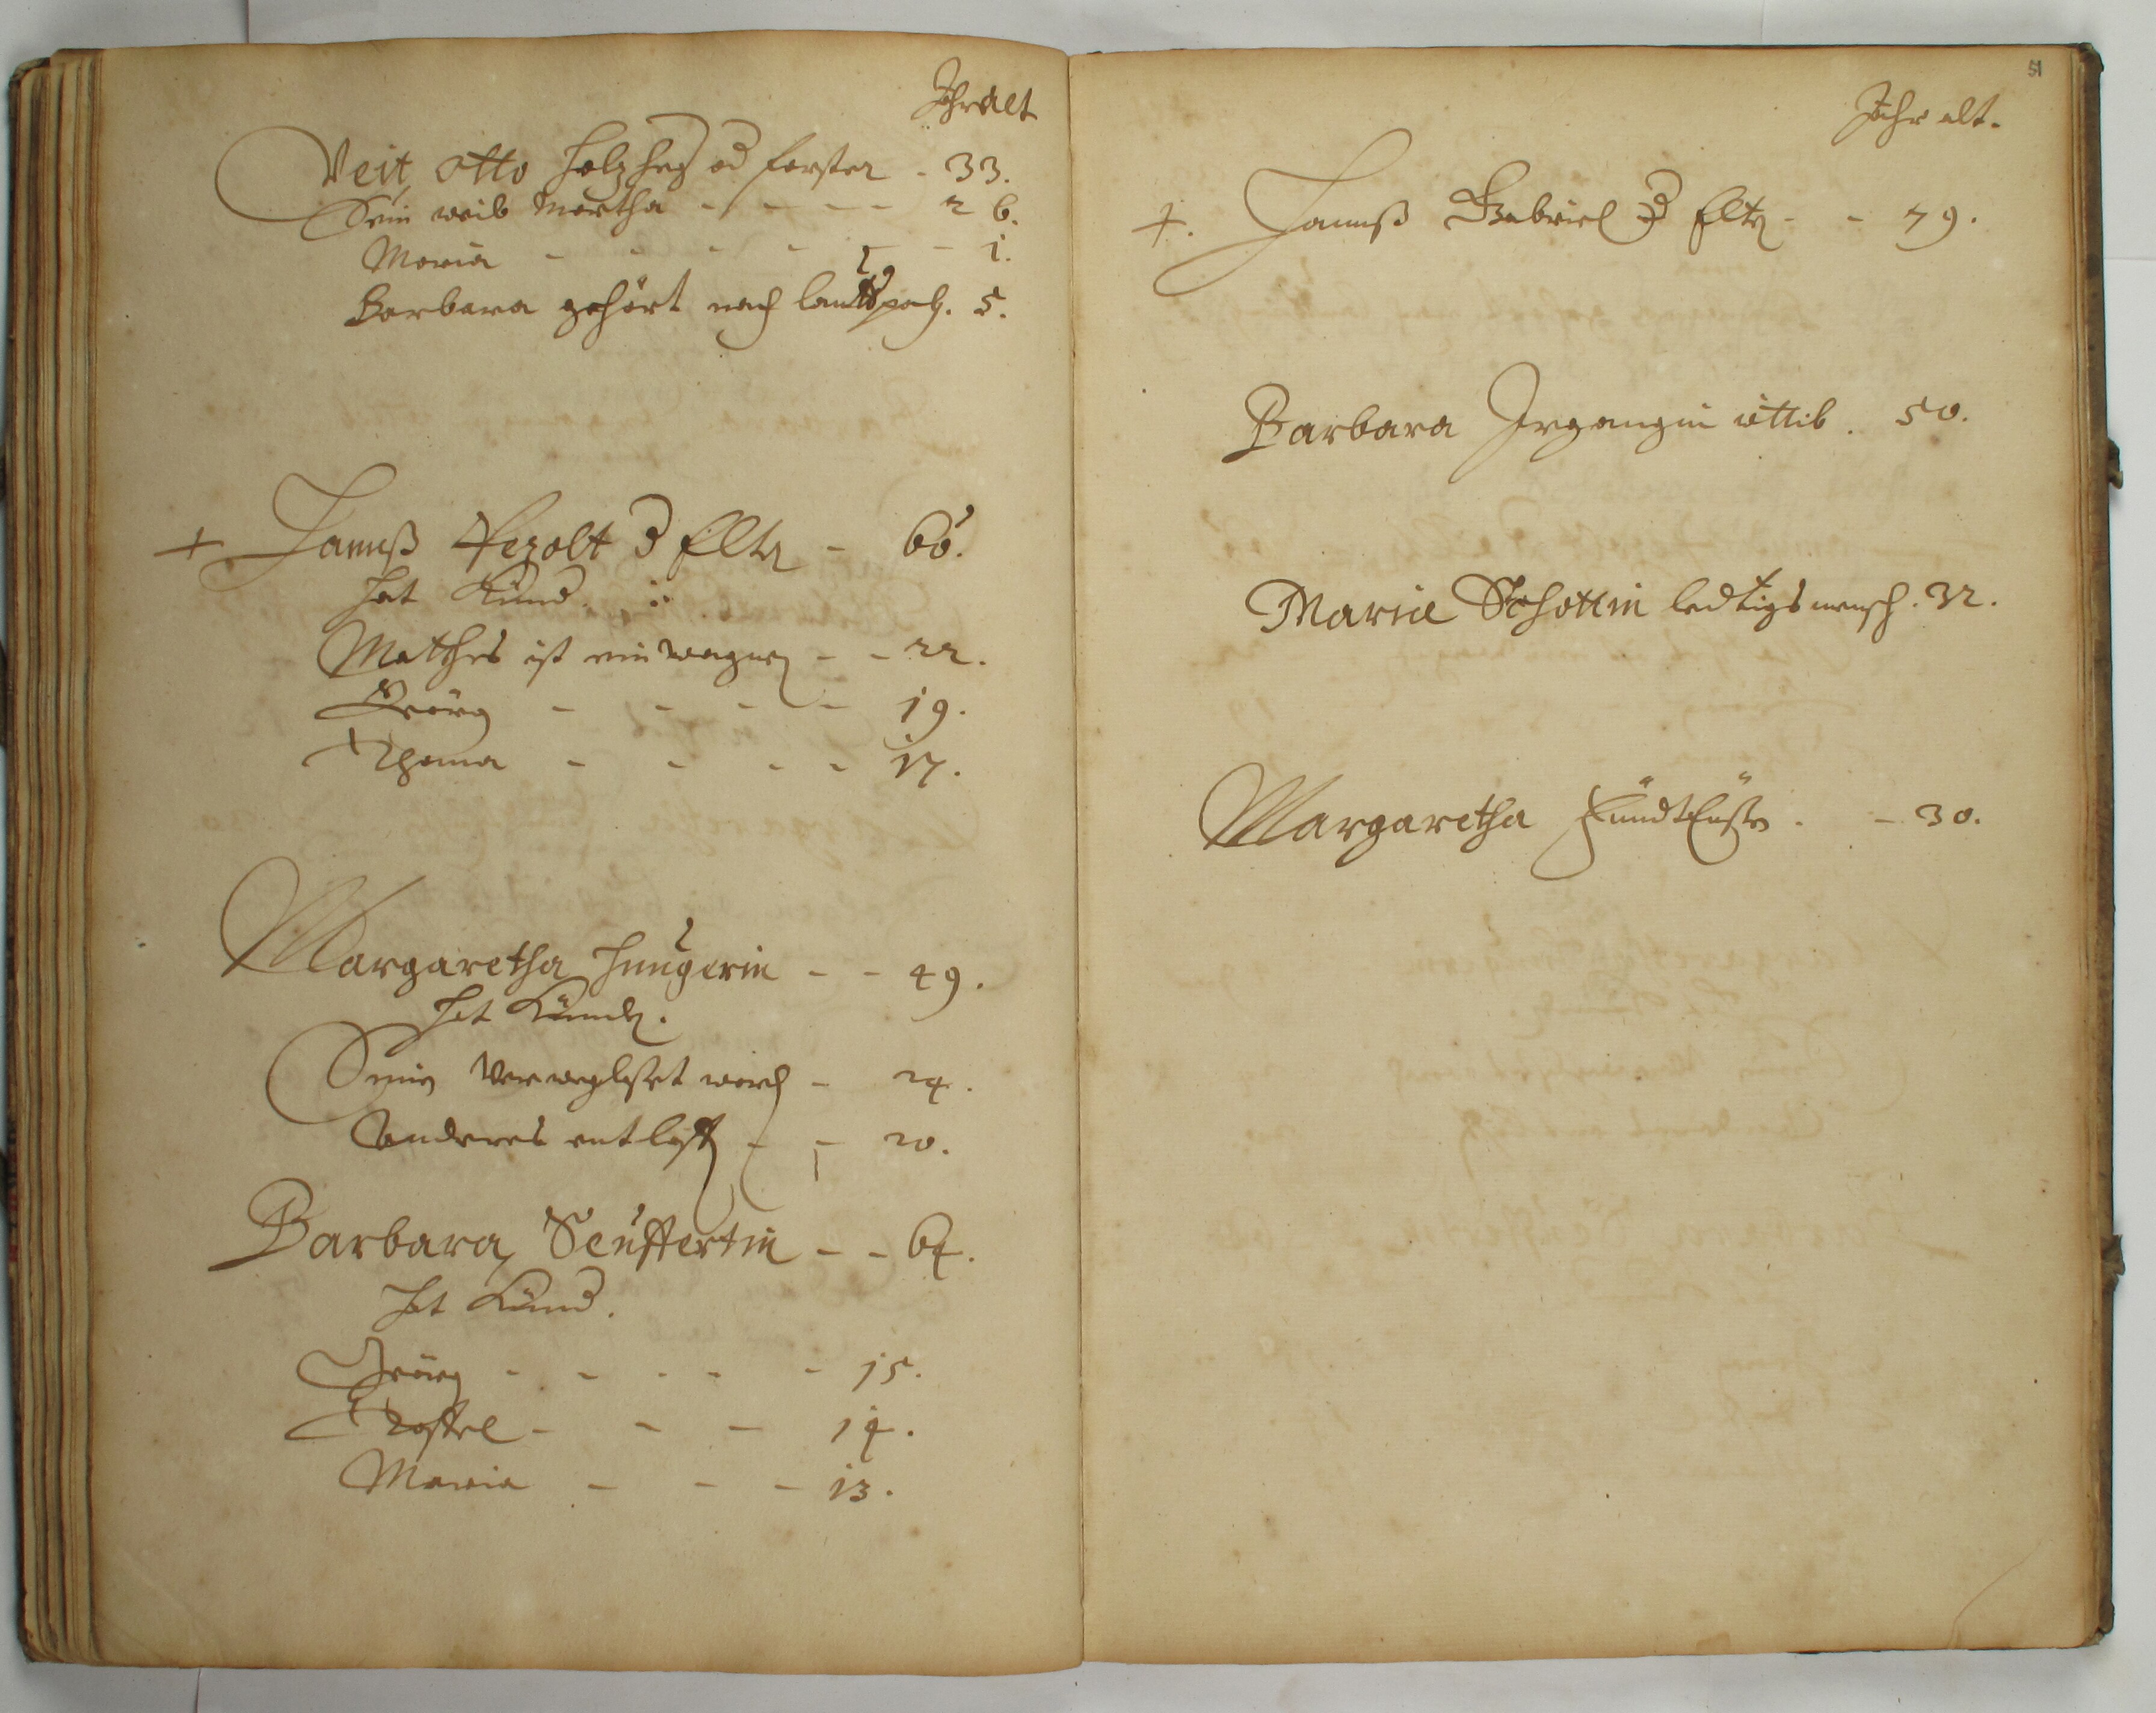 Jhr alt
Veit Otto holzheg od forster - 33.
Sein weib Martha - - - - 26.
Maria - - - - - - 1.
Barbara gehört nach 5.
+ Hannß Pezolt d Elter - 66.
hat Kind.
Mathes ist ein wagner - - 22.
Geörg - - - - 19.
Thoma - - - - 17.
Margaretha Hungerin - - 49.
hat Kinder.
24.
Anderes - - 20.
Barbara Seuffertin - - 64.
hat Kind.
Geörg - - - - - 15.
Christel - - - 14.
Maria - - - 13.
51
Jahr alt.
+. Hannß Gabriel d Elter - - 79.
Barbara Irgangin wittib. 50.
Maria Schottin ledtigs mensch. 32.
Margaretha - 30.